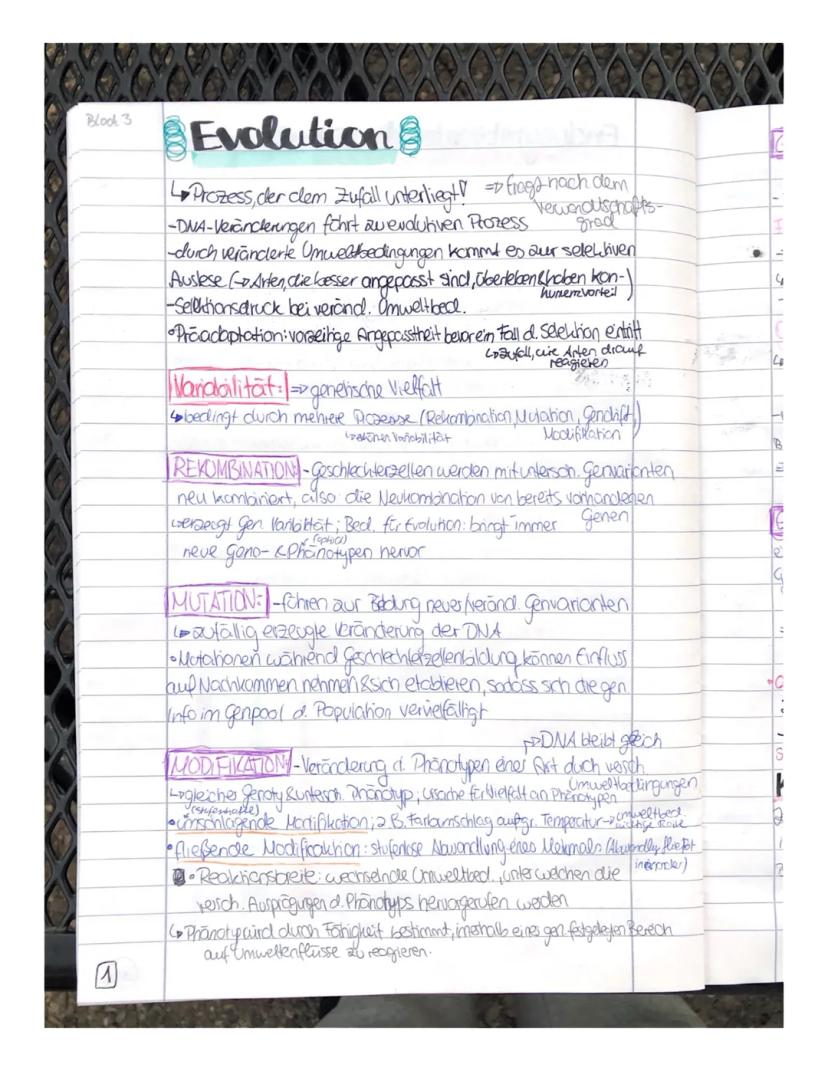 Block 3
Evolution
↳ Prozess, der dem Zufall unterliegt! => fragt nach dem
Verwandtschafts-
grad
-DNA-Veränderungen führt zu evolutiven Prozess
-durch veränderte Umweltbedingungen kommt es zur selektiven
Auslese (→ Arten, die besser angepasst sind, überleben & haben kon-)
kurrenzvorteil
-Selektionsdruck bei veränd. Umweltbed.
•Präadaptation: vorzeitige Angepasstheit bevor ein Fall d. Selektion eintritt
↳ Zufall, wie Arten drauf
reagieren
Variabilität: => genetische Vielfalt
↳ bedingt durch mehrere Prozesse (Rekombination, Mutation, Gendrift,)
↳ erhöhen Variabilität Modifikation
REKOMBINATION: - Geschlechterzellen werden mit untersch. Genvarianten
neu kombiniert, also die Neukombination von bereits vorhandenen
Genen
↳ erzeugt gen. Varibilität; Bed. für Evolution: bringt immer
neue Geno- & Phänotypen hervor
MUTATION: - führen zur Bildung neuer/veränd. Genvarianten
↳ zufällig erzeugte Veränderung der DNA
•Mutationen während Geschlechterzellenbildung können Einfluss
auf Nachkommen nehmen & sich etablieren, sodass sich die gen.
Info im Genpool d. Population vervielfältigt
→ DNA bleibt gleich
MODIFIKATION: - Veränderung d. Phänotypen einer Art durch versch.
Umweltbedingungen
↳ gleicher Genotyp & untersch. Phänotyp, Ursache für Vielfalt an Phänotypen
(stufenhafte)
•umschlagende Modifikation; z.B. Farbumschlag aufgr. Temperatur → Umweltbed.
wichtige Rolle
•fließende Modifikation: stufenlose Abwandlung eines Merkmals (Abwandlg. fließt
ineinander)
•Reaktionsbreite: wechselnde Umweltbed., unter welchen die
versch. Ausprägungen d. Phänotyps hervorgerufen werden
↳ Phänotyp wird durch Fähigkeit bestimmt, innerhalb eines gen. festgelegten Bereich
auf Umwelteinflüsse zu reagieren.
1